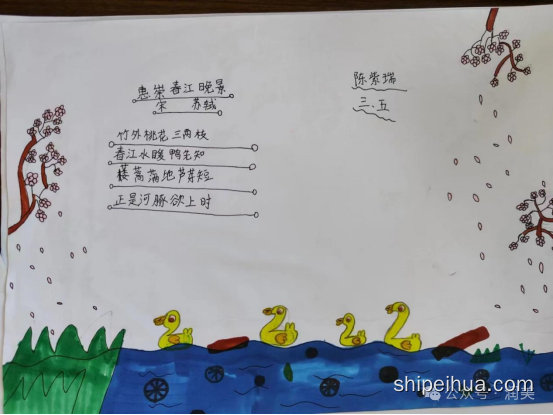 惠崇春江晚景
宋 苏轼
陈紫瑞
三.五
竹外桃花三两枝
春江水暖鸭先知
蒌蒿满地芦芽短
正是河豚欲上时
shipeihua.com
公众号·润美